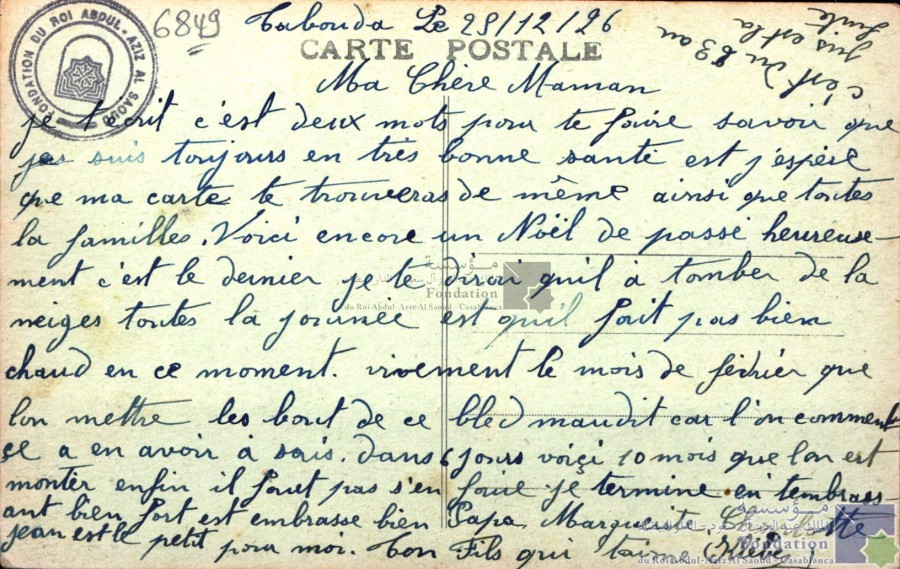 FONDATION DU ROI ABDUL-AZIZ AL SAOUD
6849
Tabouda Le 25/12/26
CARTE POSTALE
c'est du 63 au
suis est la
suite
Ma Chère Maman
je t'ecrit c'est deux mots pour te faire savoir que
je suis toujours en très bonne santé est j'espère
que ma carte te trouveras de même ainsi que toutes
la familles. Voici encore un Noël de passé heureuse-
ment c'est le dernier je te dirai qu'il à tomber de la
neiges toutes la journée est qu'il fait pas bien
chaud en ce moment. vivement le mois de février que
l'on mettre les bout de ce bled maudit car l'on commen
ce a en avoir à sais. Dans 6 jours voiçi 10 mois que l'on est
montèr enfin il faut pas s'en faire je termine en t'embrass-
ant bien fort est embrasse bien Papa Marguerite
jean est le petit pour moi. Ton Fils qui t'aime
مؤسسة
Fondation
du Roi Abdul-Aziz Al Saoud - Casablanca
مؤسسة
الملك عبد العزيز آل سعود - الدار البيضاء
Fondation
du Roi Abdul-Aziz Al Saoud - Casablanca